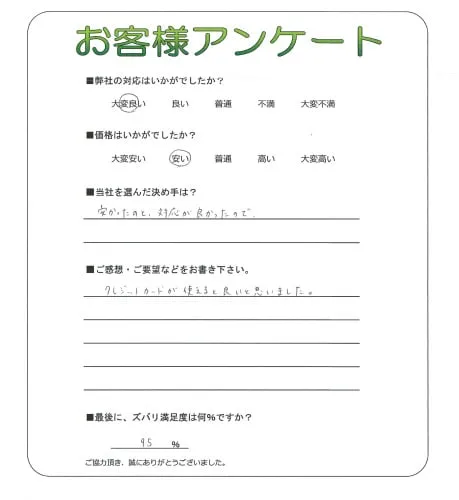 お客様アンケート
■弊社の対応はいかがでしたか？
大変良い 良い 普通 不満 大変不満
■価格はいかがでしたか？
大変安い 安い 普通 高い 大変高い
■当社を選んだ決め手は？
安かったのと、対応が良かったので。
■ご感想・ご要望などをお書き下さい。
クレジットカードが使えると良いと思いました。
■最後に、ズバリ満足度は何%ですか？
95 %
ご協力頂き、誠にありがとうございました。